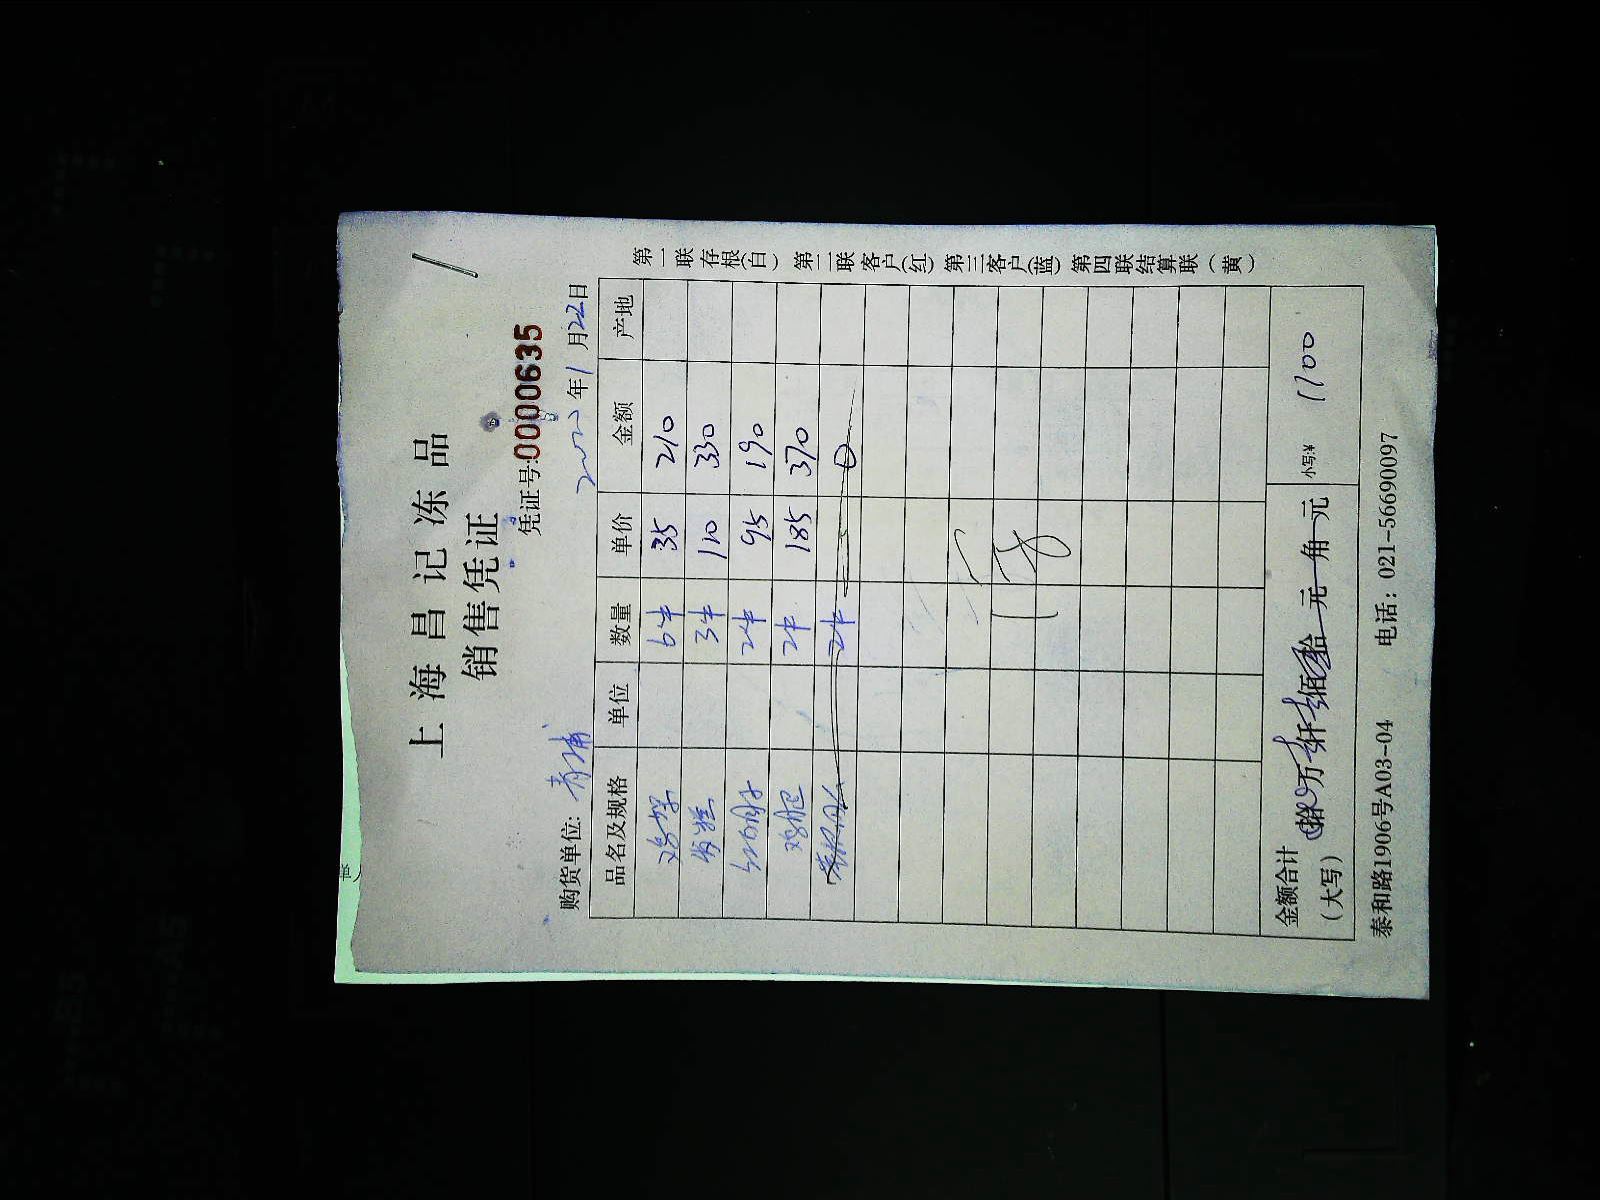 上海昌记冻品
销售凭证
凭证号:0000635
购货单位: 青浦 2022年1月22日
品名及规格 单位 数量 单价 金额 产地
鸡架 6件 35 210
3件 110 330
2件 95 190
鸡肥 2件 185 370
2件 0
金额合计 (大写) 拾 万 仟 佰 拾 元 角 元 小写:¥ 1100
泰和路1906号A03-04 电话: 021-56690097
第一联存根(白) 第二联客户(红) 第三客户(蓝) 第四联结算联(黄)